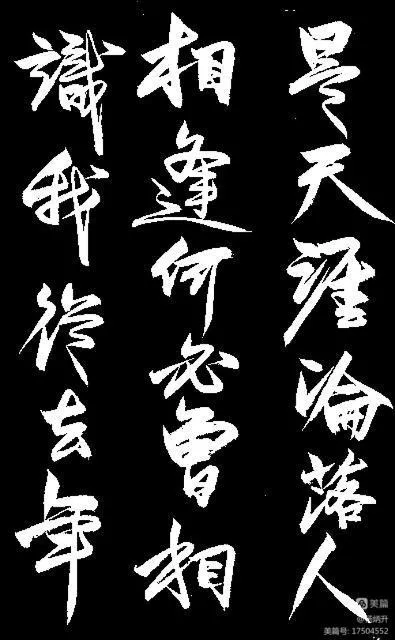 是天涯淪落人
相逢何必曾相
識我從去年
美篇
炳升
美篇号: 17504552